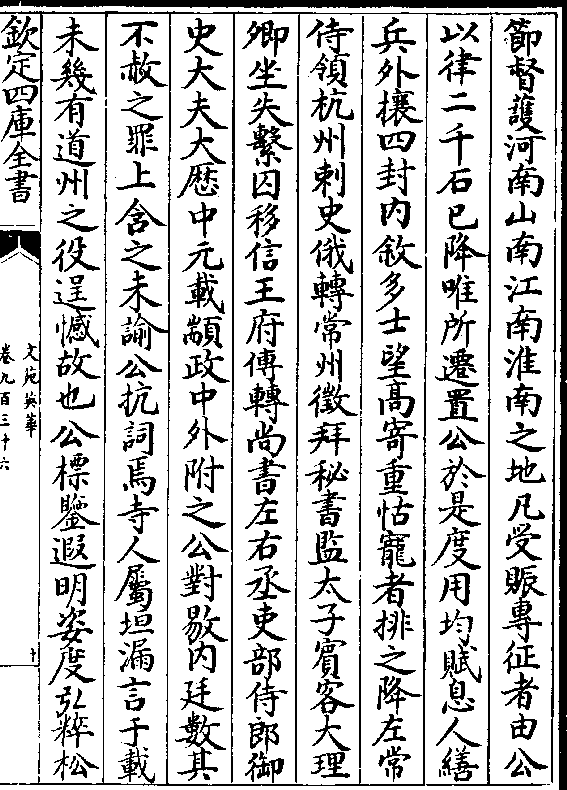 節督護河南山南江南淮南之地凡受賑專征者由公
以律二千石已降唯所遷置公於是度用均賦息人繕
兵外攘四封内敘多士望高寄重怙寵者排之降左常
侍領杭州刺史俄轉常州徵拜秘書監太子賓客大理
卿坐失繫囚移信王府傅轉尚書左右丞吏部侍郎御
史大夫大歴中元載顓政中外附之公對敭内廷數其
不赦之罪上含之未諭公抗詞焉寺人屬垣漏言于載
未幾有道州之役逞憾故也公標鑒遐明姿度弘粹松
欽定四庫全書
文苑英華
卷九百三十六
十